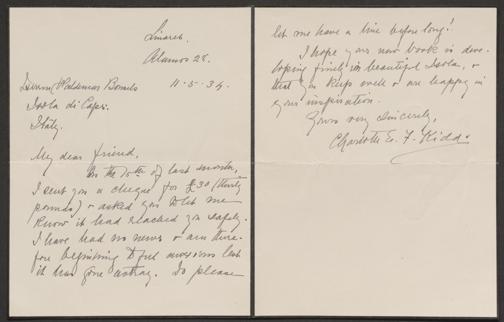 Linares.
Alamos 28.
11-5-34.
Isola di Capri.
Italy.
My dear friend,
On the 20th of last month,
I sent you a cheque for £30 (thirty
pounds) & asked you to let me
know it had reached you safely.
I have had no news & am there-
fore beginning to feel anxious lest
it has gone astray. Do please
let me have a line before long!
I hope your new book is deve-
loping finely in beautiful Isola, &
that you keep well & are happy in
your inspiration.
Yours very sincerely,
Charlotte E. F. Kidd.